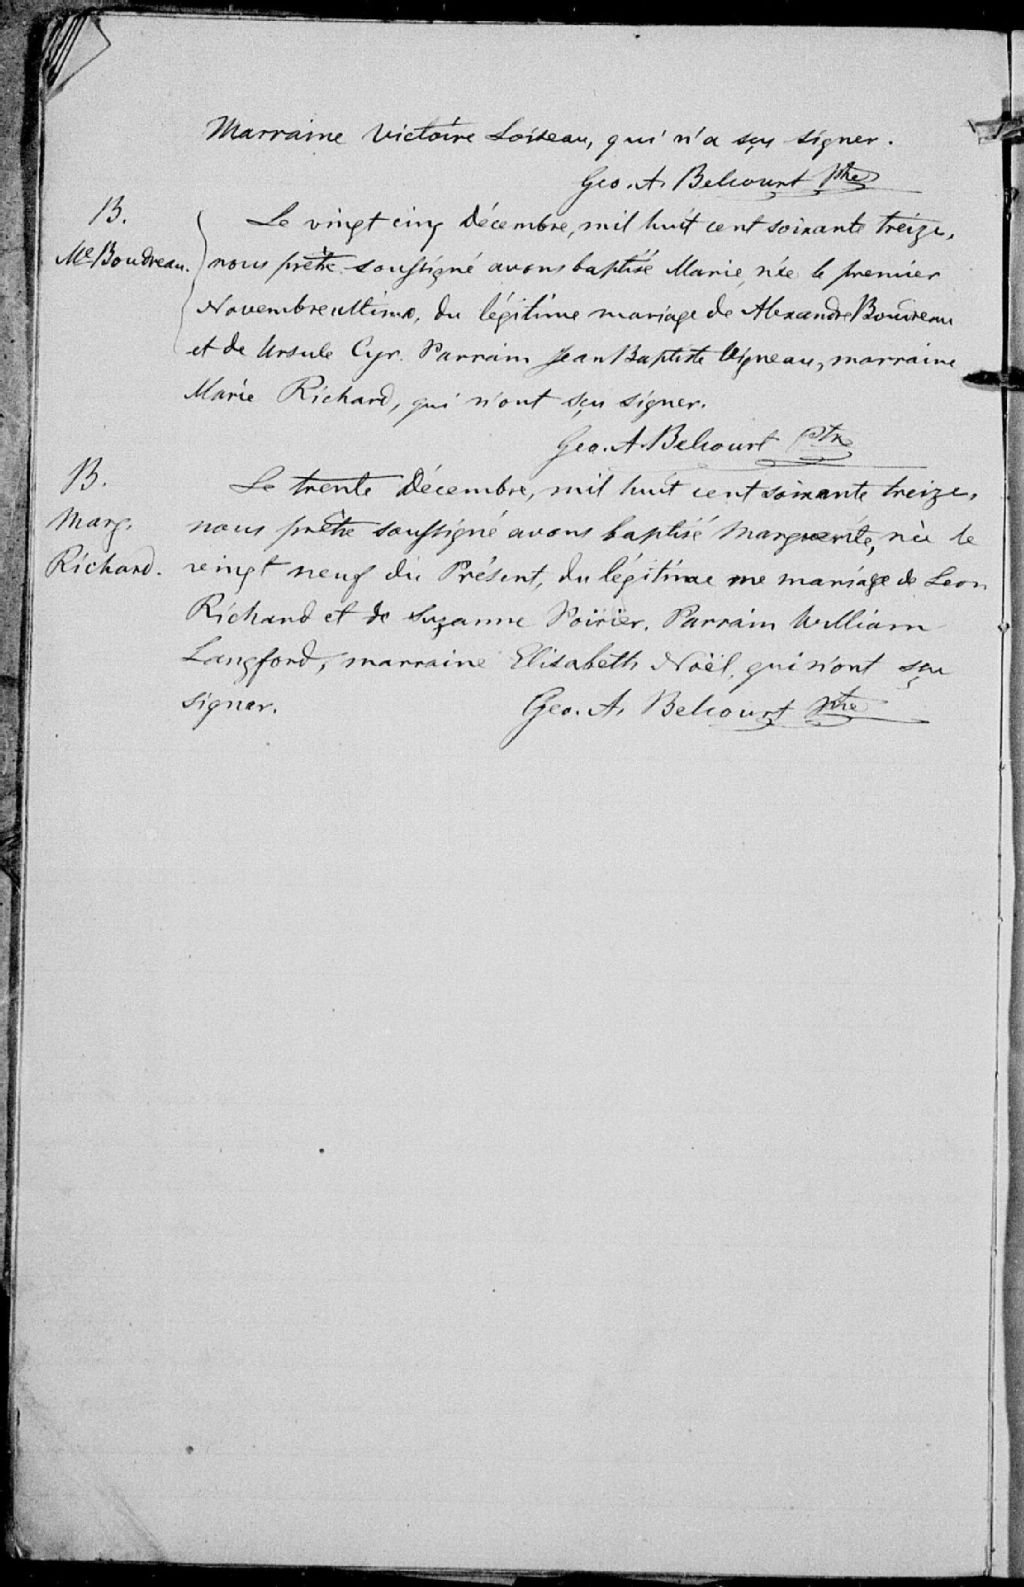 Marraine Victoire Loiseau, qui n'a sçu signer.
Geo. A. Belcourt Ptre
B.
Me Boudreau.
Le vingt cinq Décembre, mil huit cent soixante treize,
nous prêtre soussigné avons baptisé Marie, née le premier
Novembre ultimo, du légitime mariage de Alexandre Boudreau
et de Ursule Cyr. Parrain Jean Baptiste Vigneau, marraine
Marie Richard, qui n'ont sçu signer.
Geo. A. Belcourt Ptre
B.
Marg.
Richard.
Le trente Décembre, mil huit cent soixante treize,
nous prêtre soussigné avons baptisé Marguerite, née le
vingt neuf du Présent, du légitime me mariage de Leon
Richard et de Suzanne Poirier. Parrain William
Langford, marraine Elisabeth Noël, qui n'ont sçu
signer.
Geo. A. Belcourt Ptre